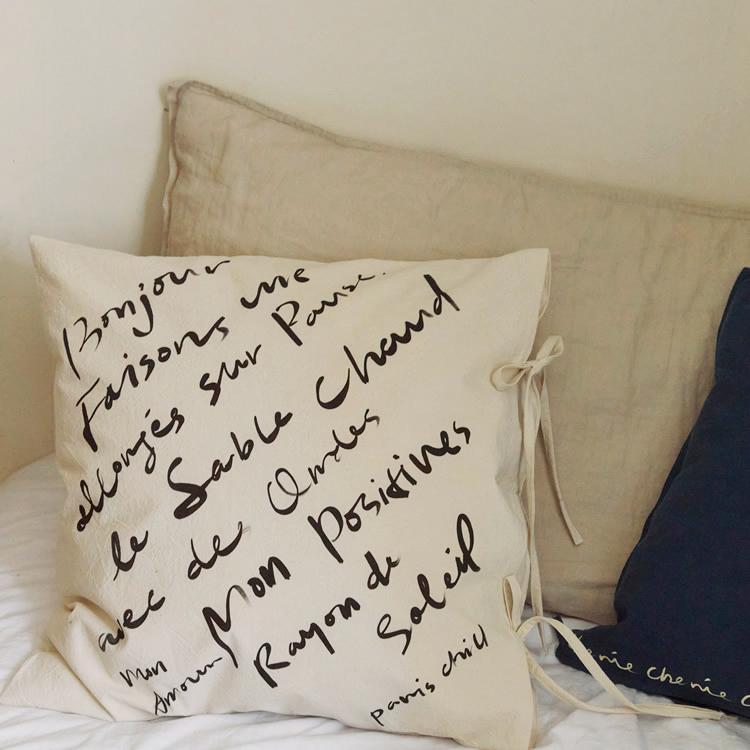 Bonjour
Faisons une
allongés sur Pause.
le Sable Chaud
avec de Ondes
Mon Positives
Rayon de
Soleil
Mon
Amour
paris chill
cherie cherie c